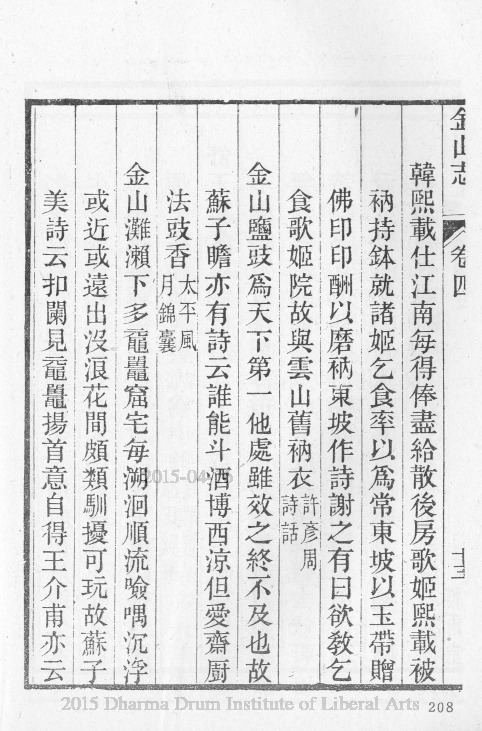 金山志
卷四
十三
韓熙載仕江南每得俸盡給散後房歌姬熙載被
衲持鉢就諸姬乞食率以爲常東坡以玉帶贈
佛印印酬以磨衲東坡作詩謝之有曰欲敎乞
食歌姬院故與雲山舊衲衣許彥周詩話
金山鹽豉爲天下第一他處雖效之終不及也故
蘇子瞻亦有詩云誰能斗酒博西涼但愛齋厨
法豉香太平風月錦囊
金山灘瀨下多黿鼉窟宅每溯洄順流噞喁沉浮
或近或遠出沒浪花間頗類馴擾可玩故蘇子
美詩云扣闌見黿鼉揚首意自得王介甫亦云
2015-04/16
2015 Dharma Drum Institute of Liberal Arts
208